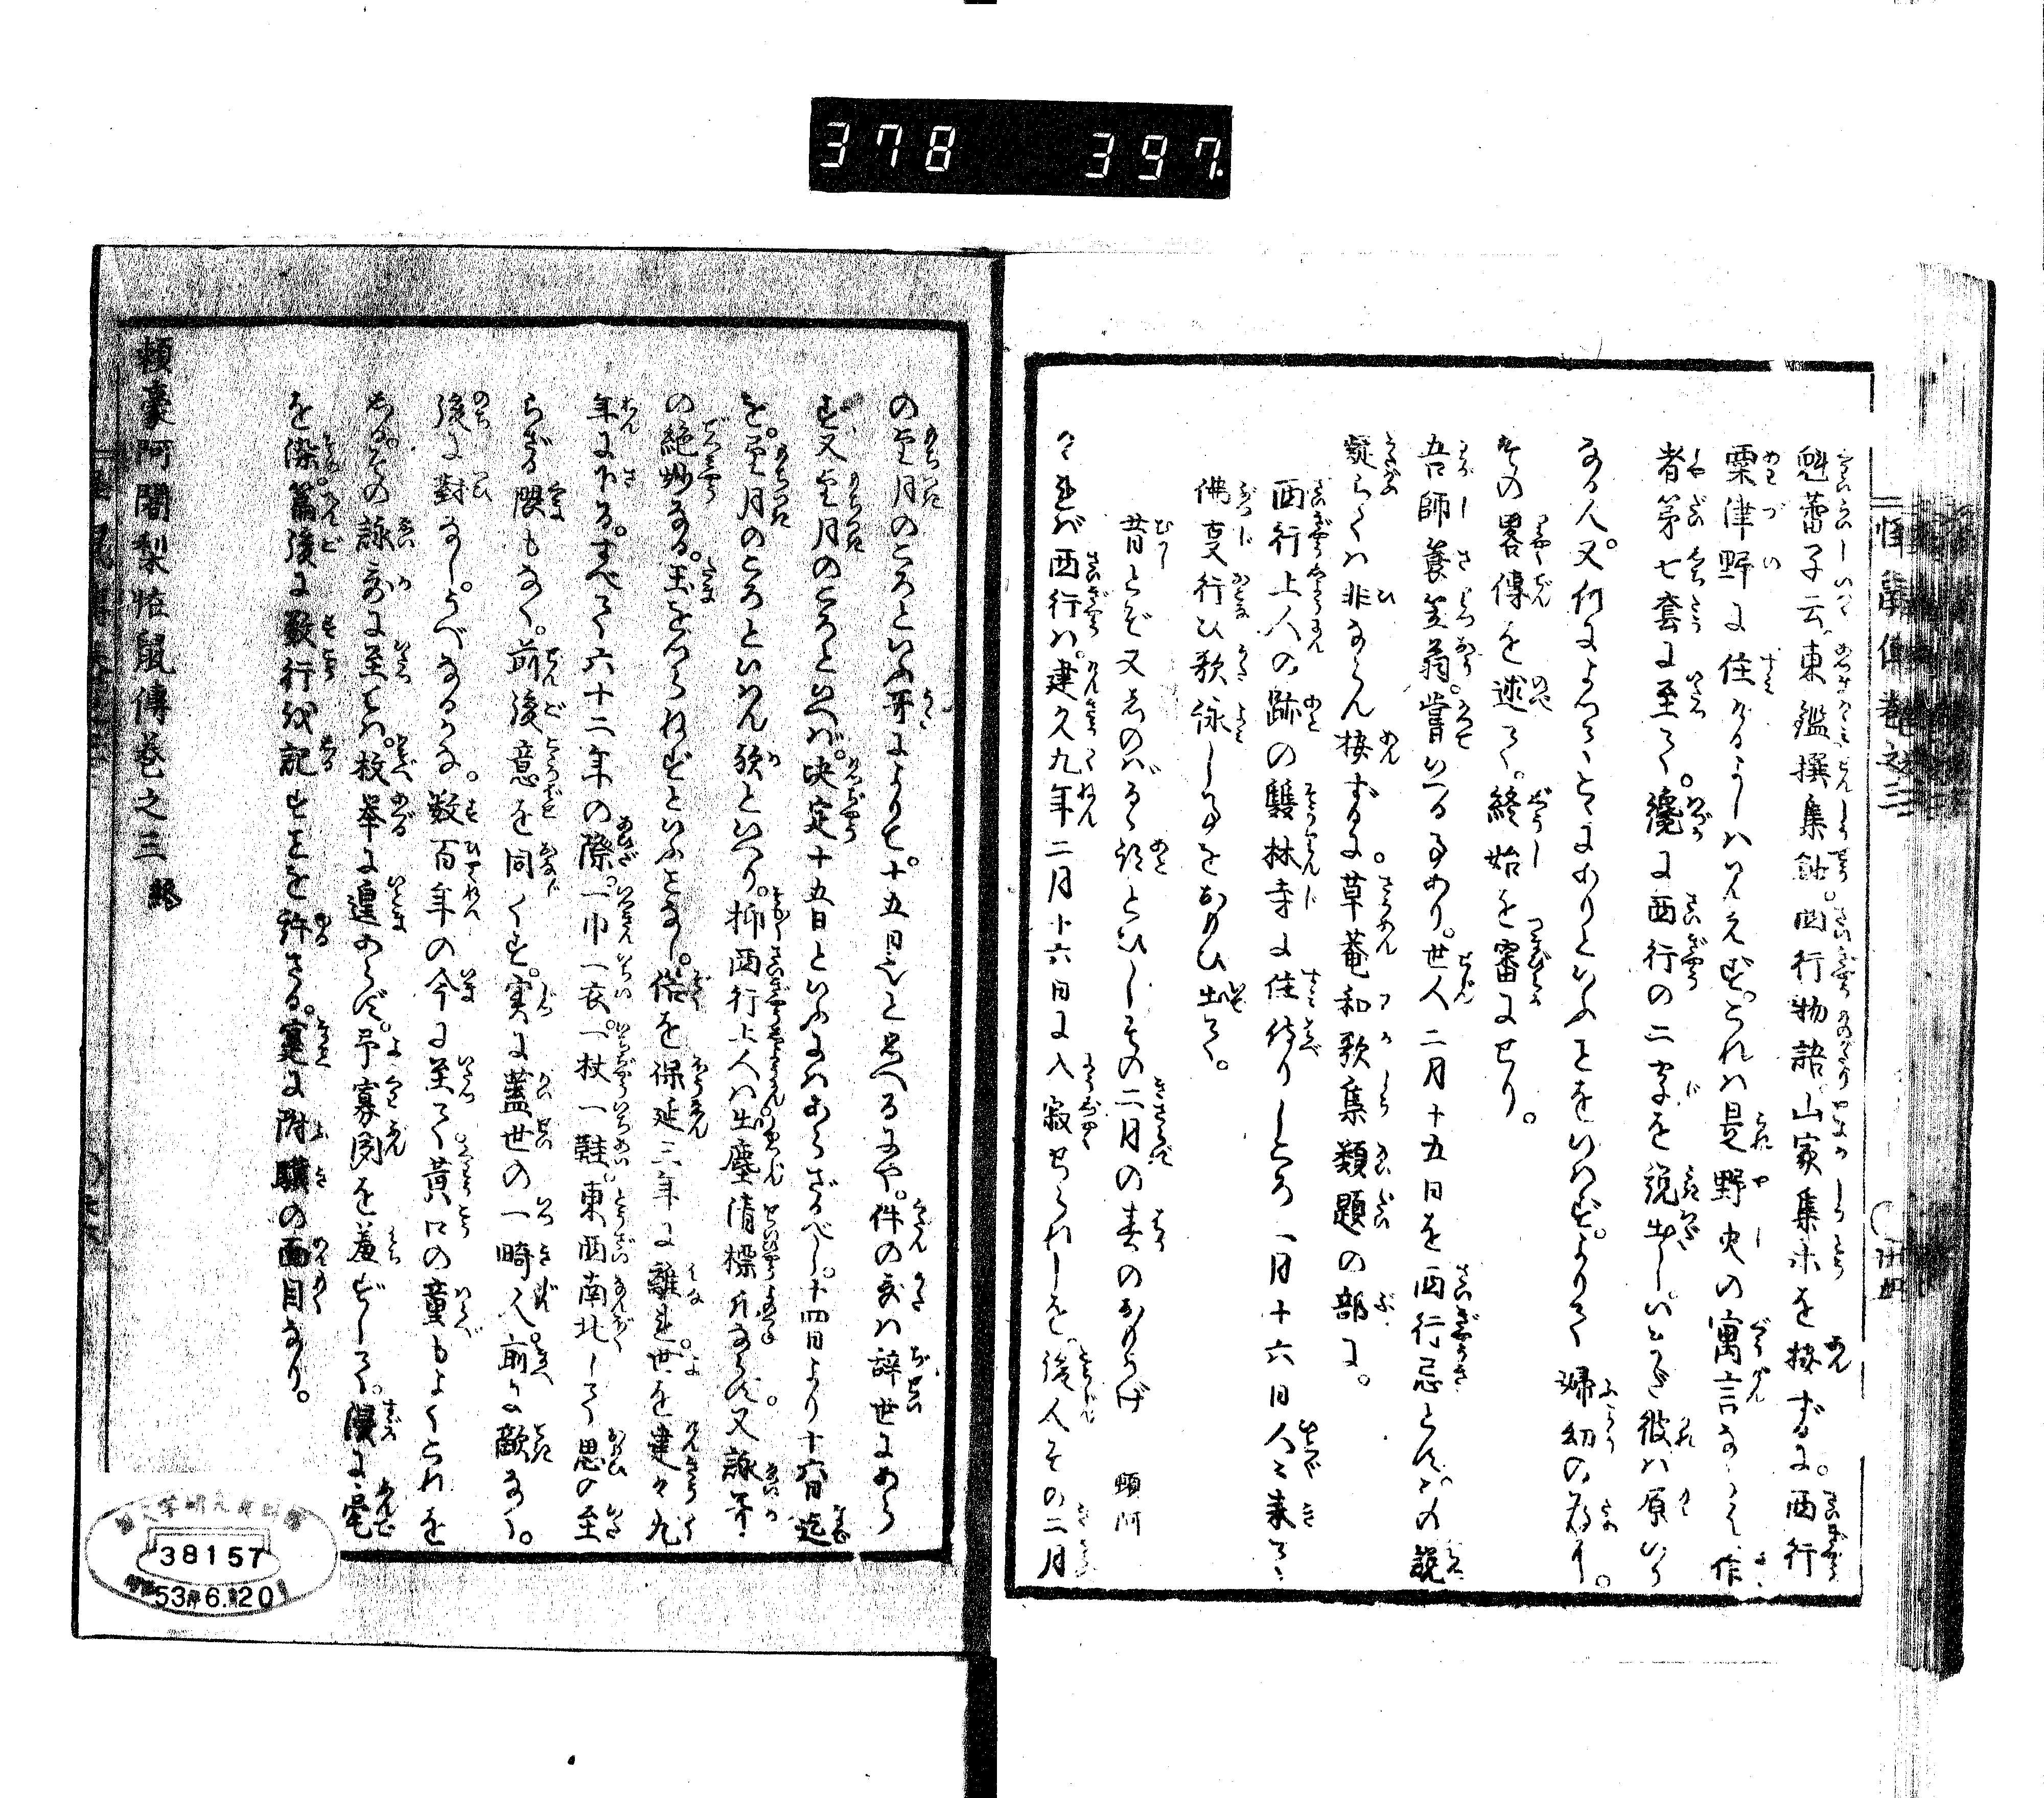 378 397
怪鼠傳巻之三
魁蕾子云。東鑑撰集鈔。西行物語。山家集等を按ずるに。西行
粟津野に住けるよしは見えず。これは是野史の寓言ならん。作
者第七套に至て。纔に西行の二字を説出し。いまだ彼は原いか
なる人。又何によつてこゝにありといふことをいはず。よりて婦幼の為に。
その畧傳を述て。終始を審にせり。
吾師簑笠翁。嘗いへる事あり。世人二月十五日を西行忌とす。この説
疑らくは非ならん。按ずるに。草菴和歌集類題の部に。
西行上人の跡の雙林寺に住侍りしころ二月十六日人々来て
佛事行ひ歌詠し事をおもひ出て。
昔とぞ又しのばるゝ跡とひしその二月の春のおもかげ 頓阿
されば西行は。建久九年二月十六日に入寂せられしを。後人その二月
の望月のころといふ哥によりて。十五日也と思へるにや。件の哥は辞世にあら
ず又望月のころといへば。決定十五日といふにはあらざるべし。十四日より十六日迄
を。望月のころといはん歟といへり。抑西行上人は出塵清標凡ならず。又詠哥
の絶妙なる。玉をつらねずといふことなし。俗を保延三年に離れ。世を建久九
年に下る。すべて六十二年の際。一巾一衣。一杖一鞋。東西南北して思の至
らざる隈もなく。前後意を同くす。実に蓋世の一畸人。前に敵なく。
後に對なし。うべなるかな。数百年の今に至て。黄口の童もよくこれを
しる。その詠哥に至ては。枚挙に遑あらず。予寡聞を羞ずして。漫に毫
を染。篇後に数行を記すことを許さる。寔に附驥の面目なり。
頼豪阿闍梨怪鼠傳巻之三 終
38157
昭和53年6月20日